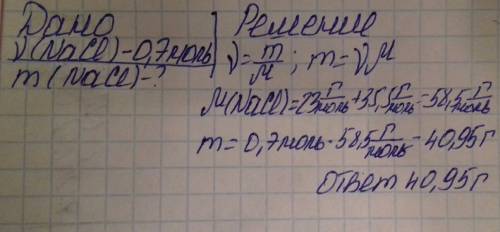 Дано
ν(NaCl)-0,7моль
m(NaCl)-?
Решение
ν=m/M; m=νM
M(NaCl)=23г/моль+35,5г/моль=58,5г/моль
m=0,7моль·58,5г/моль=40,95г
ответ 40,95г